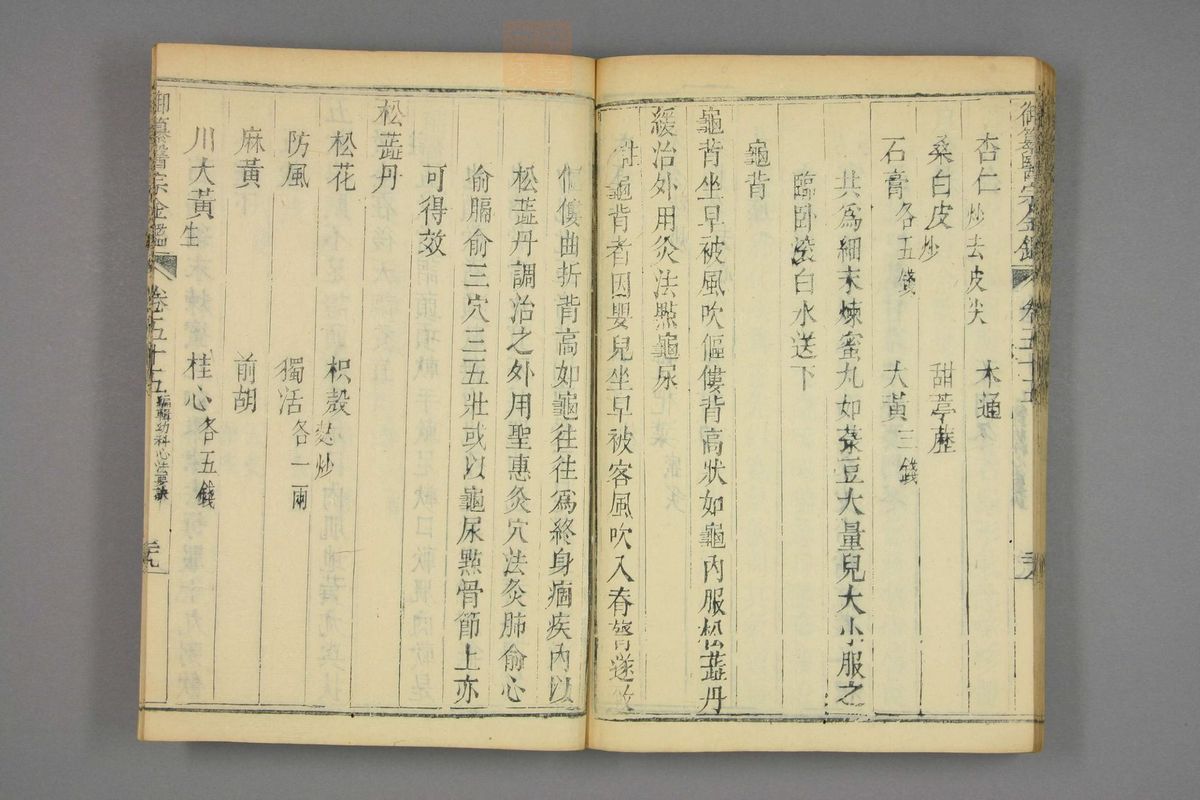 御纂醫宗金鑑 卷五十五
杏仁炒去皮尖 木通
桑白皮炒 甜葶藶
石膏各五錢 大黃三錢
共爲細末煉蜜丸如菉豆大量兒大小服之
臨臥滾白水送下
龜背
龜背坐早被風吹傴僂背高狀如龜內服松蕊丹
緩治外用灸法點龜尿
註龜背者因嬰兒坐早被客風吹入脊膂遂致
傴僂曲折背高如龜往往爲終身痼疾內以
松蕊丹調治之外用聖惠灸穴法灸肺俞心
俞膈俞三穴三五壯或以龜尿點骨節上亦
可得效
松蕊丹
松花 枳殼麩炒
防風 獨活各一兩
麻黃 前胡
川大黃生 桂心各五錢
御纂醫宗金鑑 卷五十五 編輯幼科心法要訣 三九